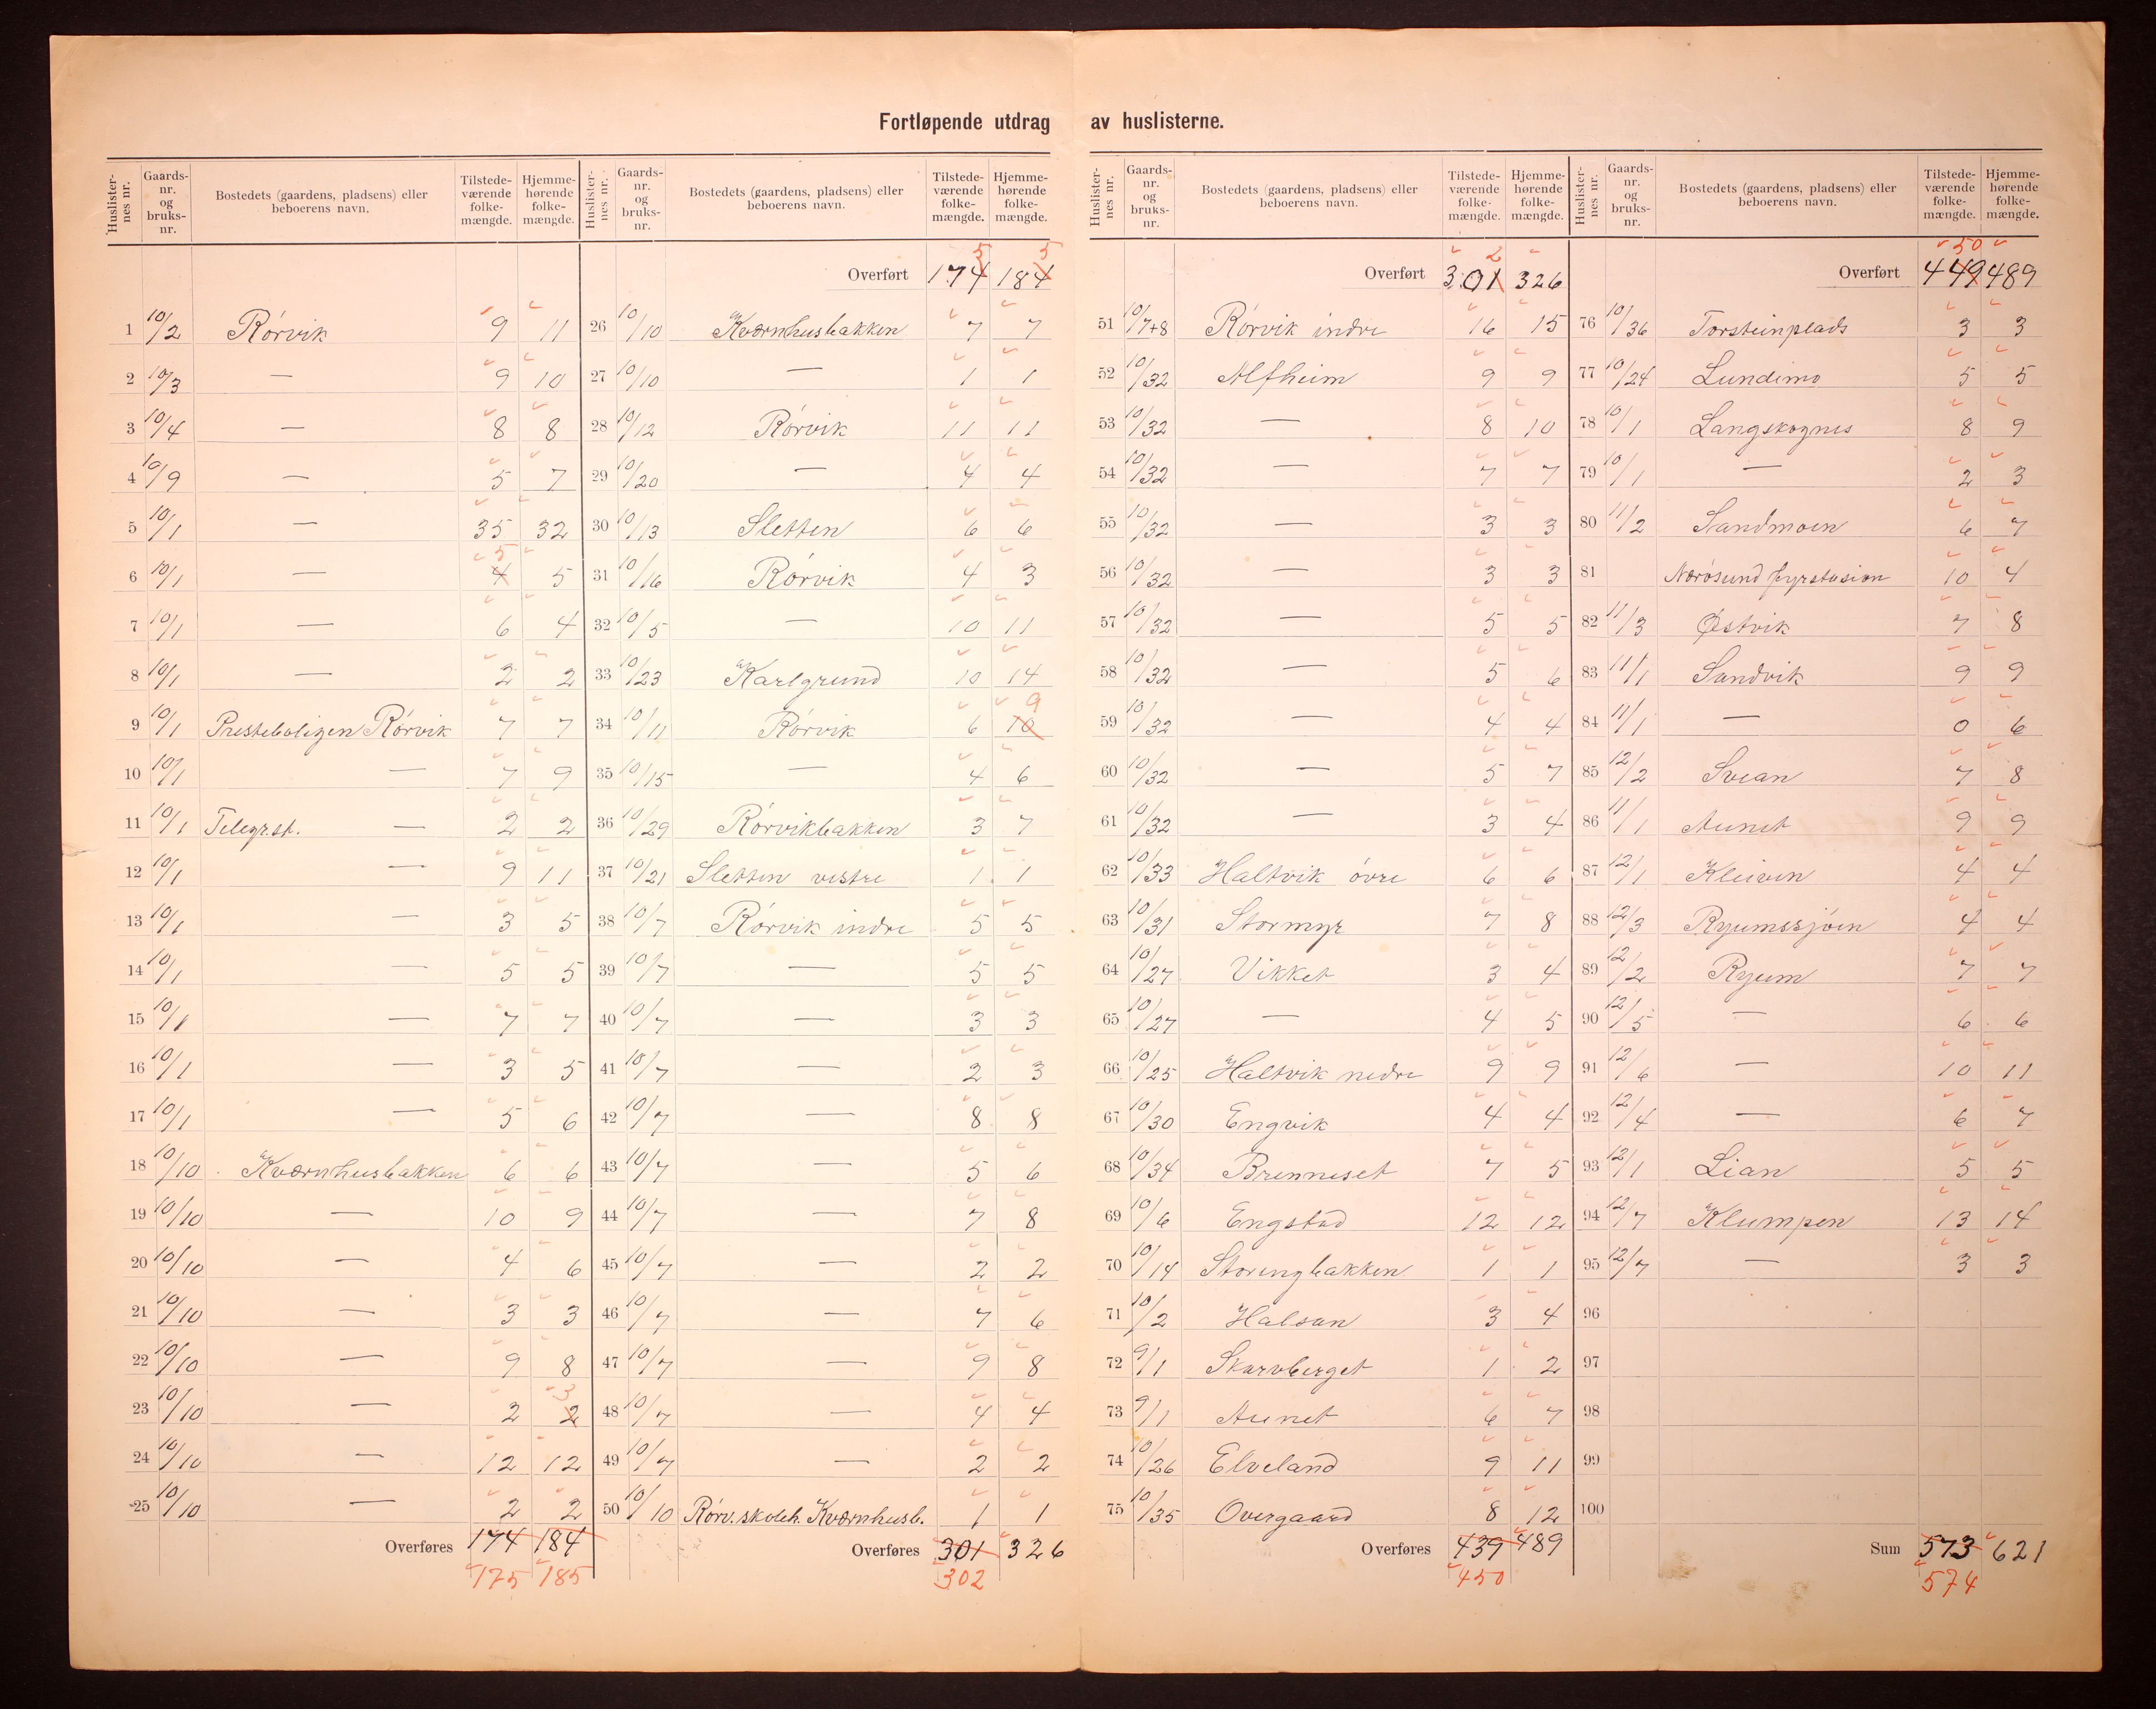 Fortløpende utdrag av huslisterne.
Huslister-nes nr. | Gaards-nr. og bruks-nr. | Bostedets (gaardens, pladsens) eller beboerens navn. | Tilstede-værende folke-mængde. | Hjemme-hørende folke-mængde.
1 10/2 Rørvik 9 11
2 10/3 — 9 10
3 10/4 — 8 8
4 10/9 — 5 7
5 10/1 — 35 32
6 10/1 — 4 5 5
7 10/1 — 6 4
8 10/1 — 2 2
9 10/1 Presteboligen Rørvik 7 7
10 10/1 — 7 9
11 10/1 Telegr.st. — 2 2
12 10/1 — 9 11
13 10/1 — 3 5
14 10/1 — 5 5
15 10/1 — 7 7
16 10/1 — 3 5
17 10/1 — 5 6
18 10/10 Kværnhusbakken 6 6
19 10/10 — 10 9
20 10/10 — 4 6
21 10/10 — 3 3
22 10/10 — 9 8
23 10/10 — 2 2 3
24 10/10 — 12 12
25 10/10 — 2 2
Overføres 174 184
175 185
Huslister-nes nr. | Gaards-nr. og bruks-nr. | Bostedets (gaardens, pladsens) eller beboerens navn. | Tilstede-værende folke-mængde. | Hjemme-hørende folke-mængde.
5 5
Overført 174 184
26 10/10 Kværnhusbakken 7 7
27 10/10 — 1 1
28 10/12 Rørvik 11 11
29 10/20 — 4 4
30 10/13 Sletten 6 6
31 10/16 Rørvik 4 3
32 10/5 — 10 11
33 10/23 Karlgrund 10 14
34 10/11 Rørvik 6 10 9
35 10/15 — 4 6
36 10/29 Rørvikbakken 3 7
37 10/21 Sletten vestre 1 1
38 10/7 Rørvik indre 5 5
39 10/7 — 5 5
40 10/7 — 3 3
41 10/7 — 2 3
42 10/7 — 8 8
43 10/7 — 5 6
44 10/7 — 7 8
45 10/7 — 2 2
46 10/7 — 7 6
47 10/7 — 9 8
48 10/7 — 4 4
49 10/7 — 2 2
50 10/10 Rørv. skoleh. Kværnhusb. 1 1
Overføres 301 326
302
Huslister-nes nr. | Gaards-nr. og bruks-nr. | Bostedets (gaardens, pladsens) eller beboerens navn. | Tilstede-værende folke-mængde. | Hjemme-hørende folke-mængde.
2
Overført 301 326
51 10/7+8 Rørvik indre 16 15
52 10/32 Alfheim 9 9
53 10/32 — 8 10
54 10/32 — 7 7
55 10/32 — 3 3
56 10/32 — 3 3
57 10/32 — 5 5
58 10/32 — 5 6
59 10/32 — 4 4
60 10/32 — 5 7
61 10/32 — 3 4
62 10/33 Haltvik øvre 6 6
63 10/31 Stormyr 7 8
64 10/27 Vikket 3 4
65 10/27 — 4 5
66 10/25 Haltvik nedre 9 9
67 10/30 Engvik 4 4
68 10/34 Brenneset 7 5
69 10/6 Engstad 12 12
70 10/14 Storengbakken 1 1
71 10/2 Halsan 3 4
72 9/1 Skarvberget 1 2
73 9/1 Aunet 6 7
74 10/26 Elveland 9 11
75 10/35 Overgaard 8 12
Overføres 439 489
450
Huslister-nes nr. | Gaards-nr. og bruks-nr. | Bostedets (gaardens, pladsens) eller beboerens navn. | Tilstede-værende folke-mængde. | Hjemme-hørende folke-mængde.
50
Overført 449 489
76 10/36 Torsteinplads 3 3
77 10/24 Lundimo 5 5
78 10/1 Langskognes 8 9
79 10/1 — 2 3
80 11/2 Sandmoen 6 7
81 Nærøsund fyrstasion 10 4
82 11/3 Østvik 7 8
83 11/1 Sandvik 9 9
84 11/1 — 0 6
85 12/2 Svean 7 8
86 11/1 Aunet 9 9
87 12/1 Kleiven 4 4
88 12/3 Ryumssjøen 4 4
89 12/2 Ryum 7 7
90 12/5 — 6 6
91 12/6 — 10 11
92 12/4 — 6 7
93 12/1 Lian 5 5
94 12/7 Klumpen 13 14
95 12/7 — 3 3
96
97
98
99
100
Sum 573 621
574